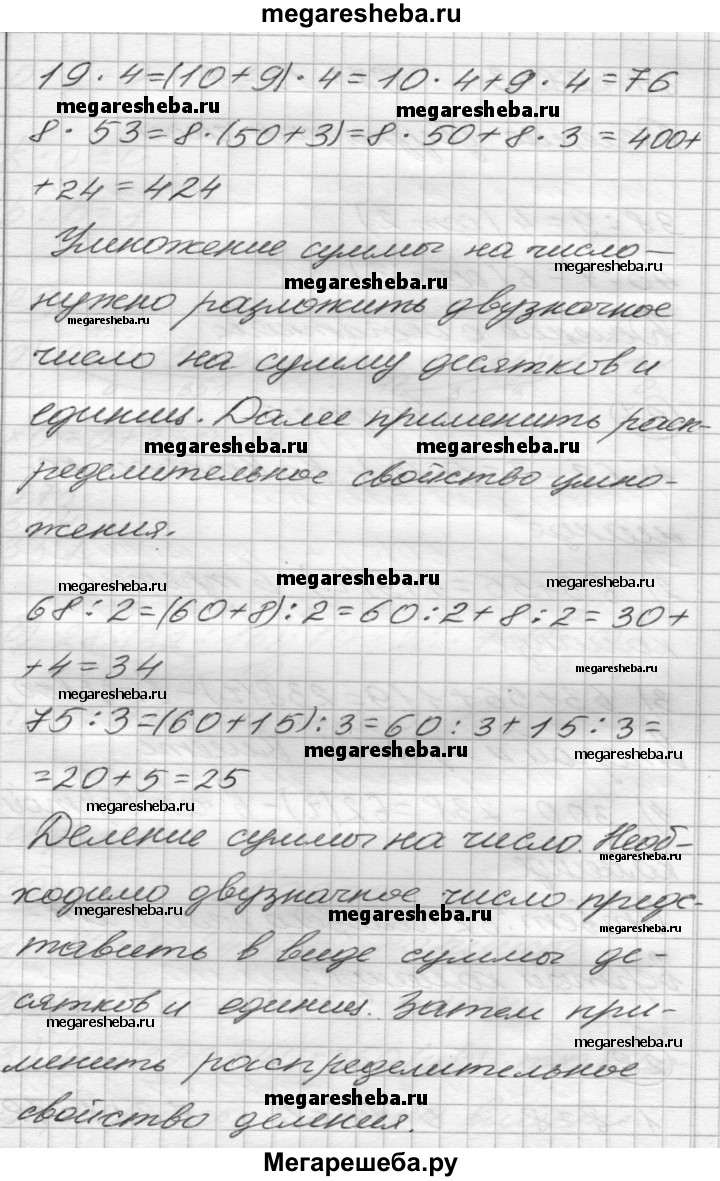 megaresheba.ru
19 · 4=(10+9) · 4= 10 · 4+9 · 4 =76
megaresheba.ru megaresheba.ru
8 · 53=8·(50+3)=8 · 50+8 · 3 = 400+
+24 = 424
Умножение суммы на число –
megaresheba.ru megaresheba.ru
нужно разложить двузначное
megaresheba.ru
число на сумму десятков и
единиц. Далее применить расп-
megaresheba.ru megaresheba.ru
ределительное свойство умно-
жения.
megaresheba.ru megaresheba.ru megaresheba.ru
68:2=(60+8):2=60:2+8:2=30+
+4=34
megaresheba.ru
megaresheba.ru
75:3=(60+15):3=60:3+15:3=
megaresheba.ru megaresheba.ru
=20+5=25
megaresheba.ru
Деление суммы на число. Необ-
megaresheba.ru
ходимо двузначное число предс-
megaresheba.ru megaresheba.ru megaresheba.ru
тавить в виде суммы де-
сятков и единиц. Затем при-
megaresheba.ru megaresheba.ru
менить распределительное
megaresheba.ru
свойство деления.
Мегарешеба.ру